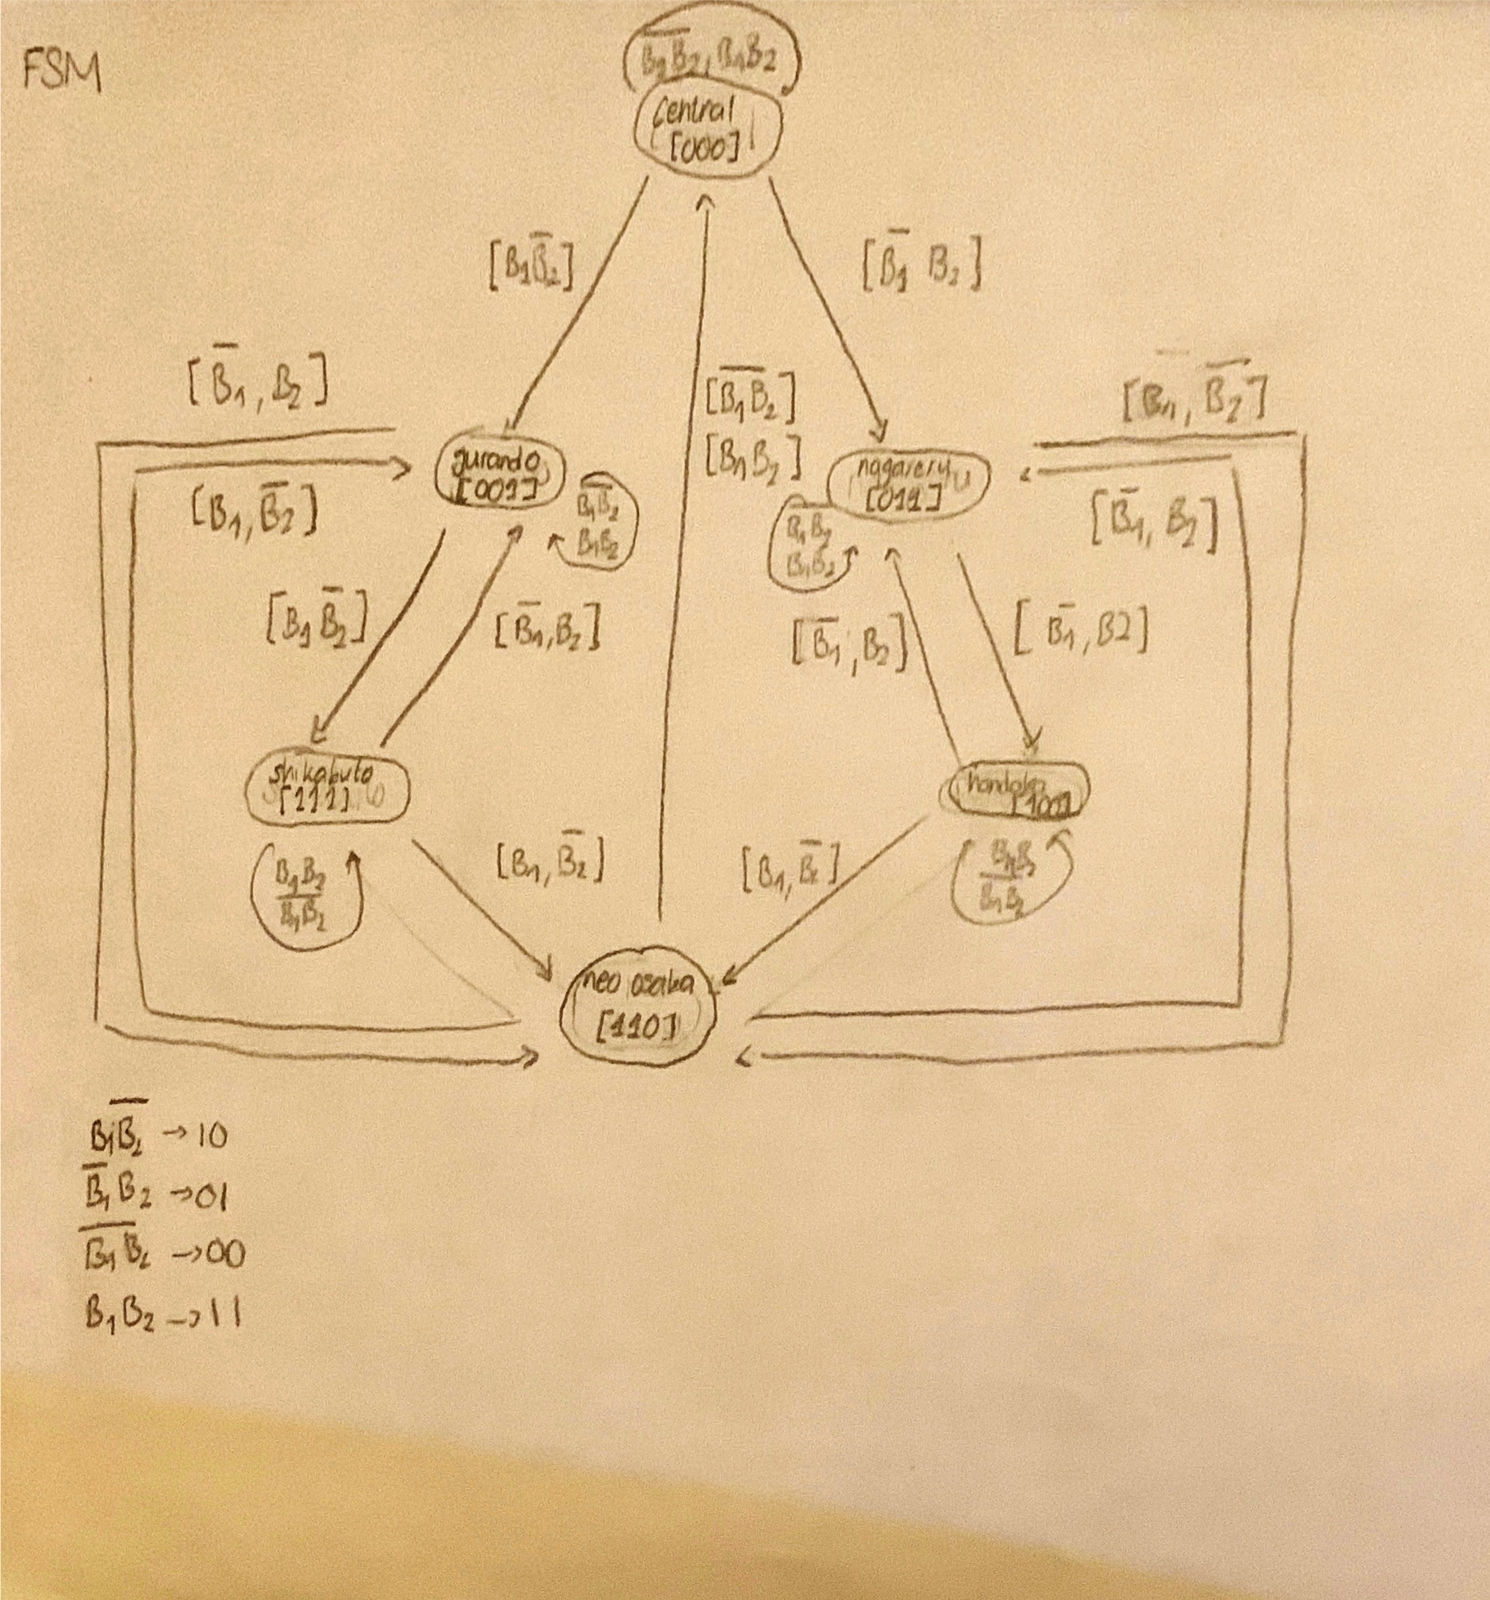 FSM
B̅₁B̅₂, B₁B₂
Central
[000]
[B₁B̅₂]
[B̅₁ B₂]
[B̅₁, B₂]
[B̅₁B̅₂]
[B₁B₂]
[B₁, B̅₂]
gurando
[001]
B̅₁B̅₂
B₁B₂
nagareru
[011]
B̅₁B̅₂
B₁B₂
[B₁, B̅₂]
[B̅₁, B₂]
[B₁ B̅₂]
[B̅₁, B₂]
[B̅₁, B₂]
[B̅₁, B2]
shikabuto
[111]
B₁B₂
B̅₁B̅₂
[B₁, B̅₂]
[B₁, B̅₂]
B₁B₂
B̅₁B̅₂
neo osaka
[110]
B₁B̅₂ → 10
B̅₁ B₂ → 01
B̅₁B̅₂ → 00
B₁ B₂ → 11